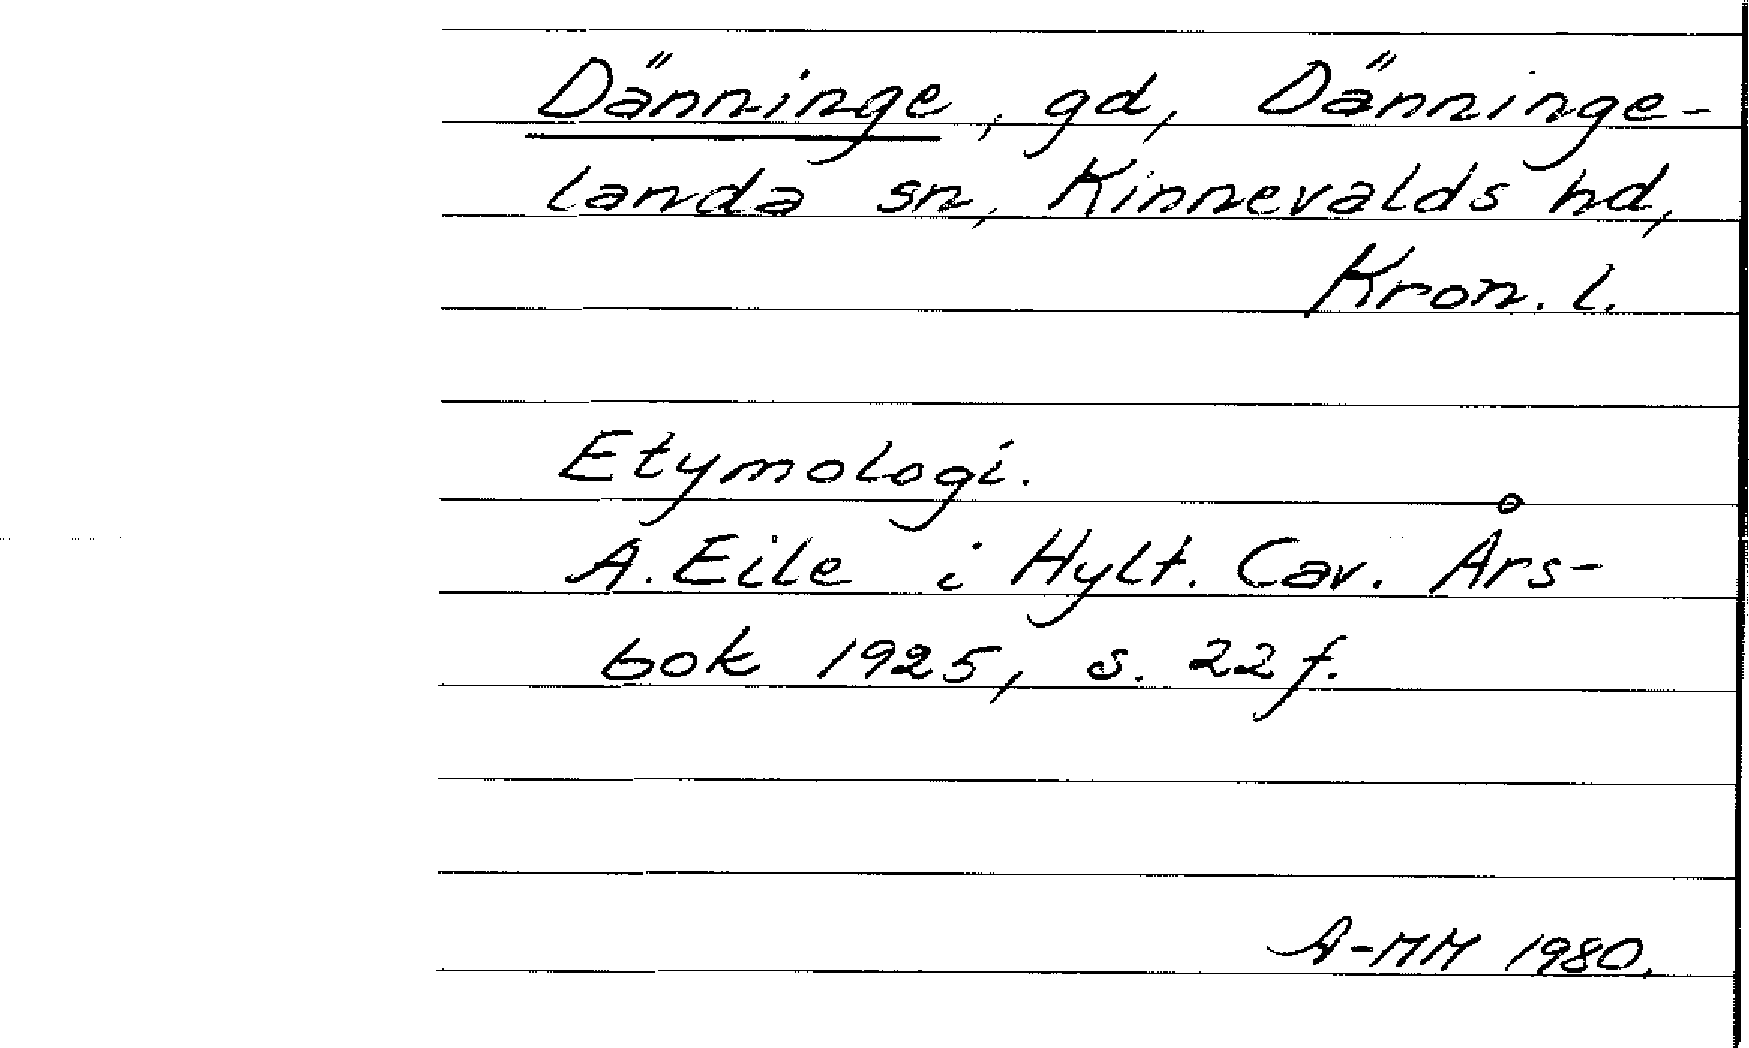 Dänninge, gd, Dänninge-
landa sn, Kinnevalds hd,
Kron. l.
Etymologi.
A. Eile i Hylt. Cav. Års-
bok 1925, s. 22 f.
A-MM 1980.